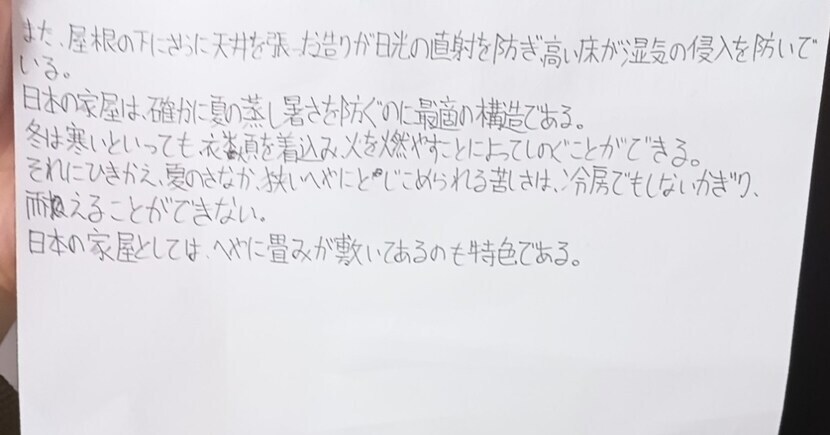 また、屋根の下にさらに天井を張った造りが日光の直射を防ぎ、高い床が湿気の侵入を防いで
いる。
日本の家屋は、確かに夏の蒸し暑さを防ぐのに最適の構造である。
冬は寒いといっても、衣類を着込み、火を燃やすことによってしのぐことができる。
それにひきかえ、夏のさなか、狭いへやにとじこめられる苦しさは、冷房でもしないかぎり、
耐えることができない。
日本の家屋としては、へやに畳みが敷いてあるのも特色である。